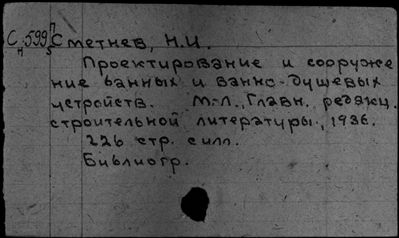 С 599 Сметнев, Н.И.
Проектирование и сооруже
ние ванных и ванно-душевых
устройств. М.-Л., Главн. редакц.
строительной литературы, 1936.
226 стр. с илл.
Библиогр.